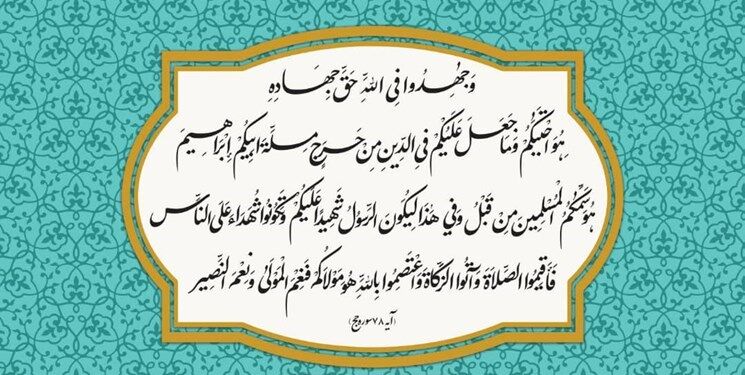 وَجٰهِدُوا فِي اللَّهِ حَقَّ جِهَادِهِ
هُوَ اجْتَبَىكُمْ وَمَا جَعَلَ عَلَيْكُمْ فِي الدِّينِ مِنْ حَرَجٍ مِلَّةَ أَبِيكُمْ إِبْرَاهِيمَ
هُوَ سَمَّىكُمُ الْمُسْلِمِينَ مِنْ قَبْلُ وَفِي هٰذَا لِيَكُونَ الرَّسُولُ شَهِيدًا عَلَيْكُمْ وَتَكُونُوا شُهَدَاءَ عَلَى النَّاسِ
فَأَقِيمُوا الصَّلَاةَ وَآتُوا الزَّكَاةَ وَاعْتَصِمُوا بِاللَّهِ هُوَ مَوْلَاكُمْ فَنِعْمَ الْمَوْلَىٰ وَنِعْمَ النَّصِير
(آیه ۷۸ سوره حج)